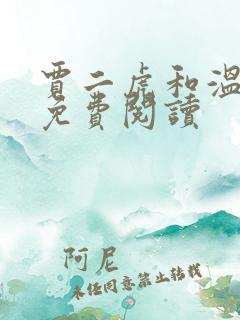 賈二虎和溫
免費閱讀
阿尼
未经同意禁止转载